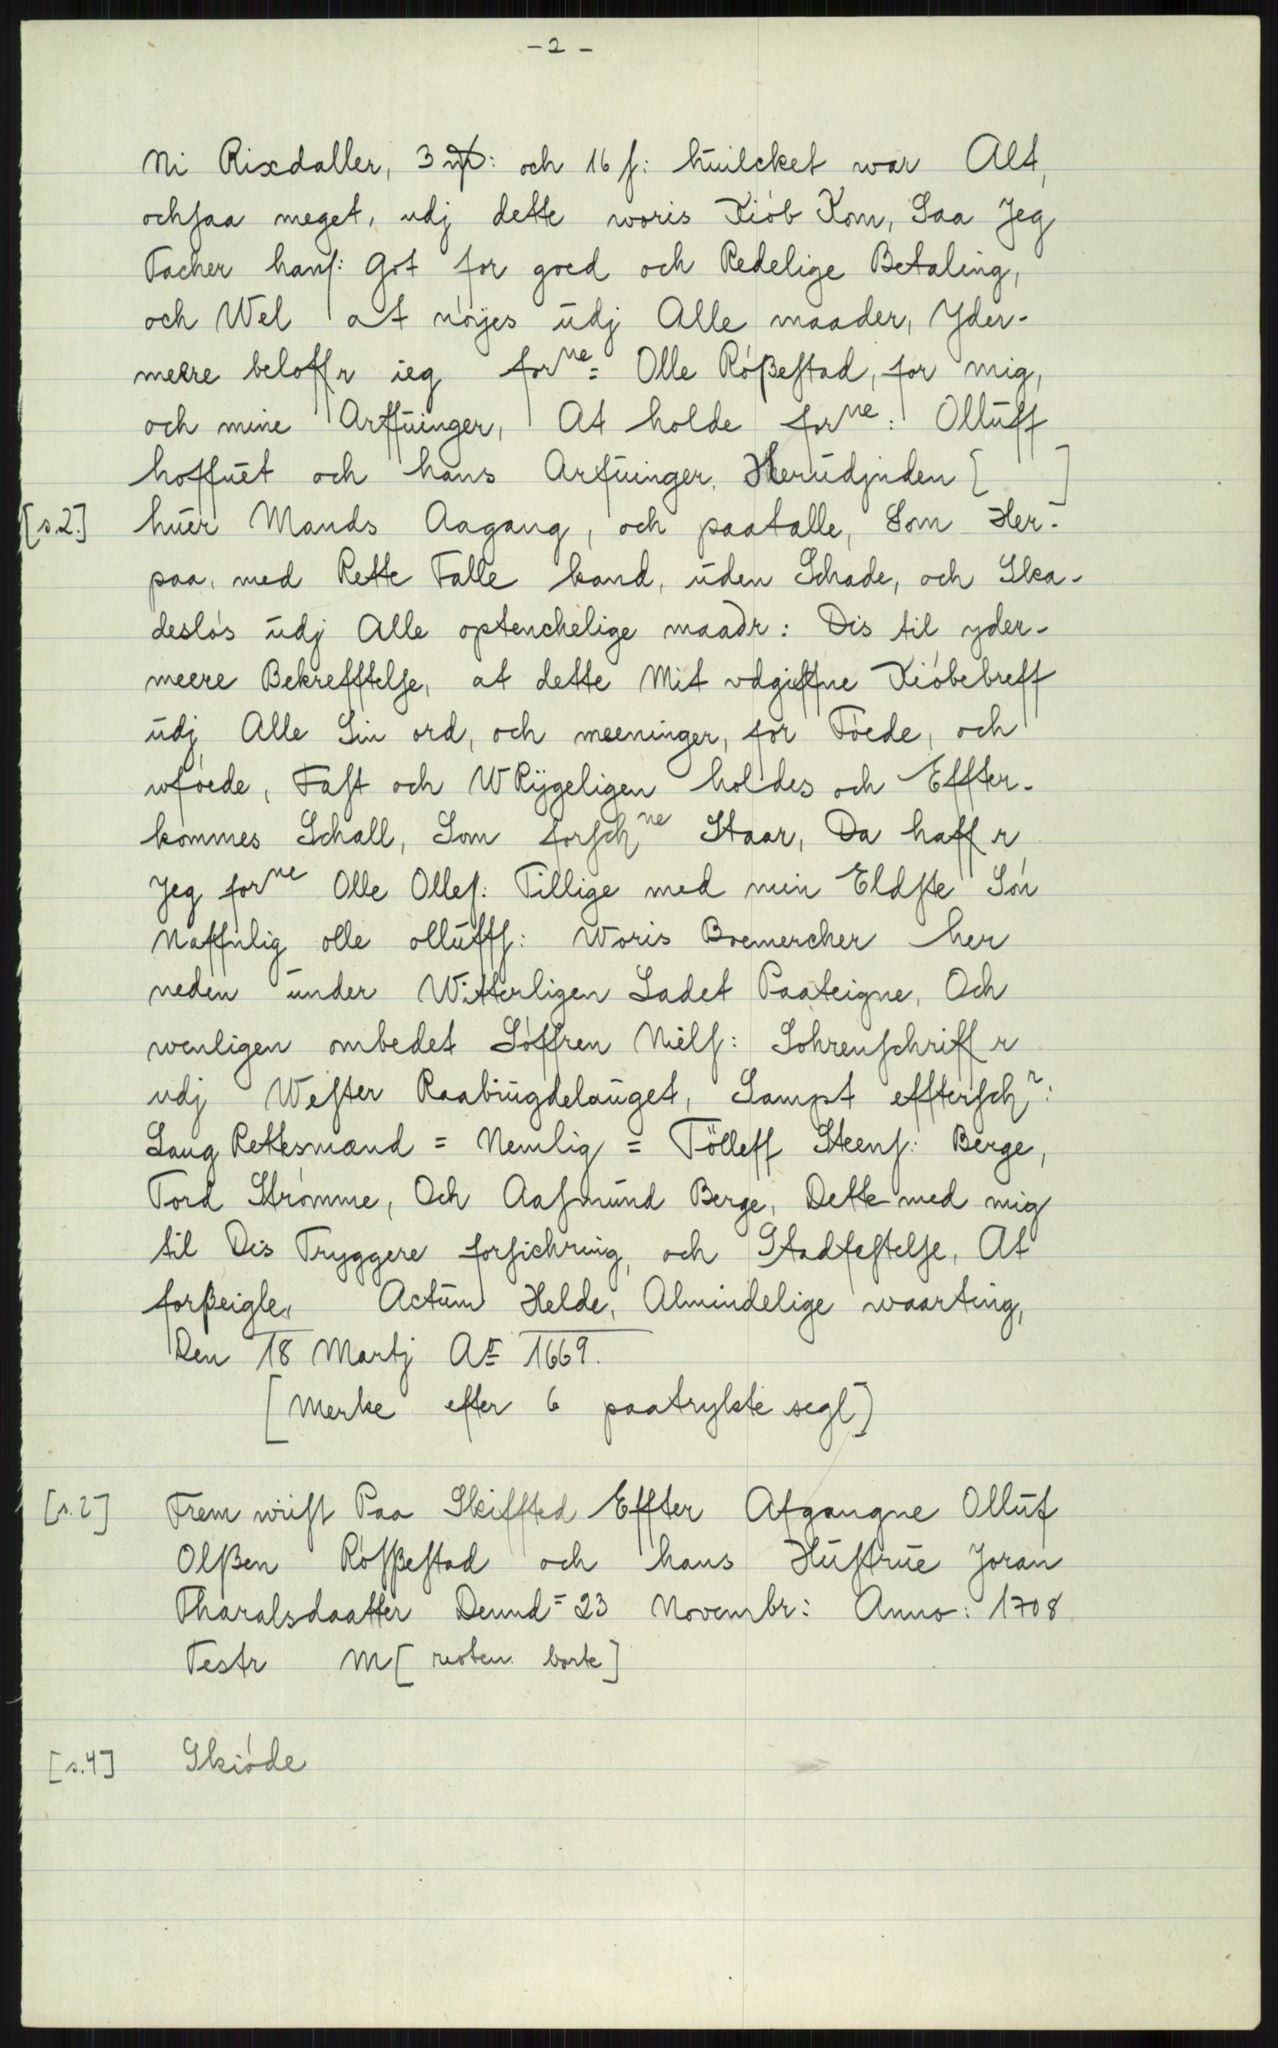 - 2 -
Ni Rixdaller, 3 och 16 s: huilcket war Alt,
ochsaa meget, udj dette woris Kiób Kom, Saa Jeg
Tacher hans: Got for goed och Redelige Betaling,
och Wel at nóyes udj Alle maader, Yder-
meere beloffr ieg forne= Olle Róßestad, for mig,
och mine Arffuinger, At holde forne: Olluff
hoffuet och hans Arfuinger, Herudjnden [ ]
[s.2.] huer Mands Aagang, och paatalle, Som Her-
paa, med Rette Falle kand, uden Schade, och Ska-
deslós udj Alle optenchelige maadr: Dis til yder-
meere Bekrefftelse, at dette Mit vdgiffne Kióbebreff
udj Alle Sin ord, och meeninger, for Fóede, och
wfóede, Fast och WRyggeligen holdes och Effter-
kommes Schall, Som forschne Staar, Da haffr
Jeg forne Olle Olles: Tillige med min Eldste Són
Naffnlig olle olluffs: Woris Boemercher her
neden under Witterligen Ladet Paateigne, Och
wenligen ombedet Sóffren Niels: Sohrenschriffr
udj Wester Raabiugdelauget, Sampt efftersch?:
Laug Rettesmænd = Nemlig = Tölleff Steens: Berge,
Tord Strómme, Och Aasmund Berge, Dette med mig
til Dis Tryggere forsichring, och Stadfestelse, At
forßeigle, Actum Helde, Almindelige waarting,
Den 18 Martj Ao 1669.
[Merke efter 6 paatrykte segl]
[s.2] Frem wist Paa Skiffted Effter Afgangne Olluf
Olßen Rósßestad och hans Hustrue Joran
Tharalsdaatter Dennd= 23 Novembr: Anno: 1708
Testr M [resten borte]
[s.4] Skióde